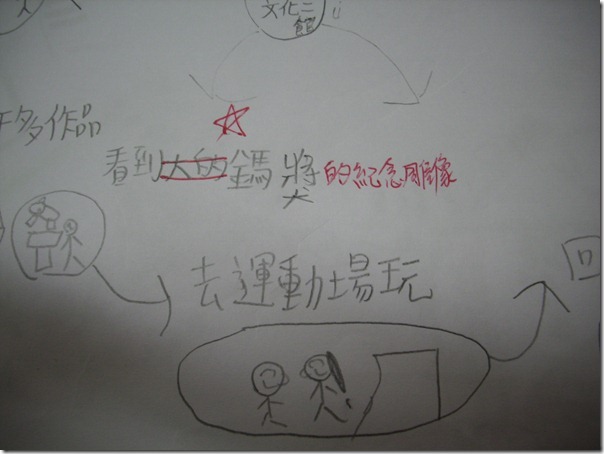 文化二
館
多作品
看到大的鎷獎的紀念雕像
去運動場玩
回